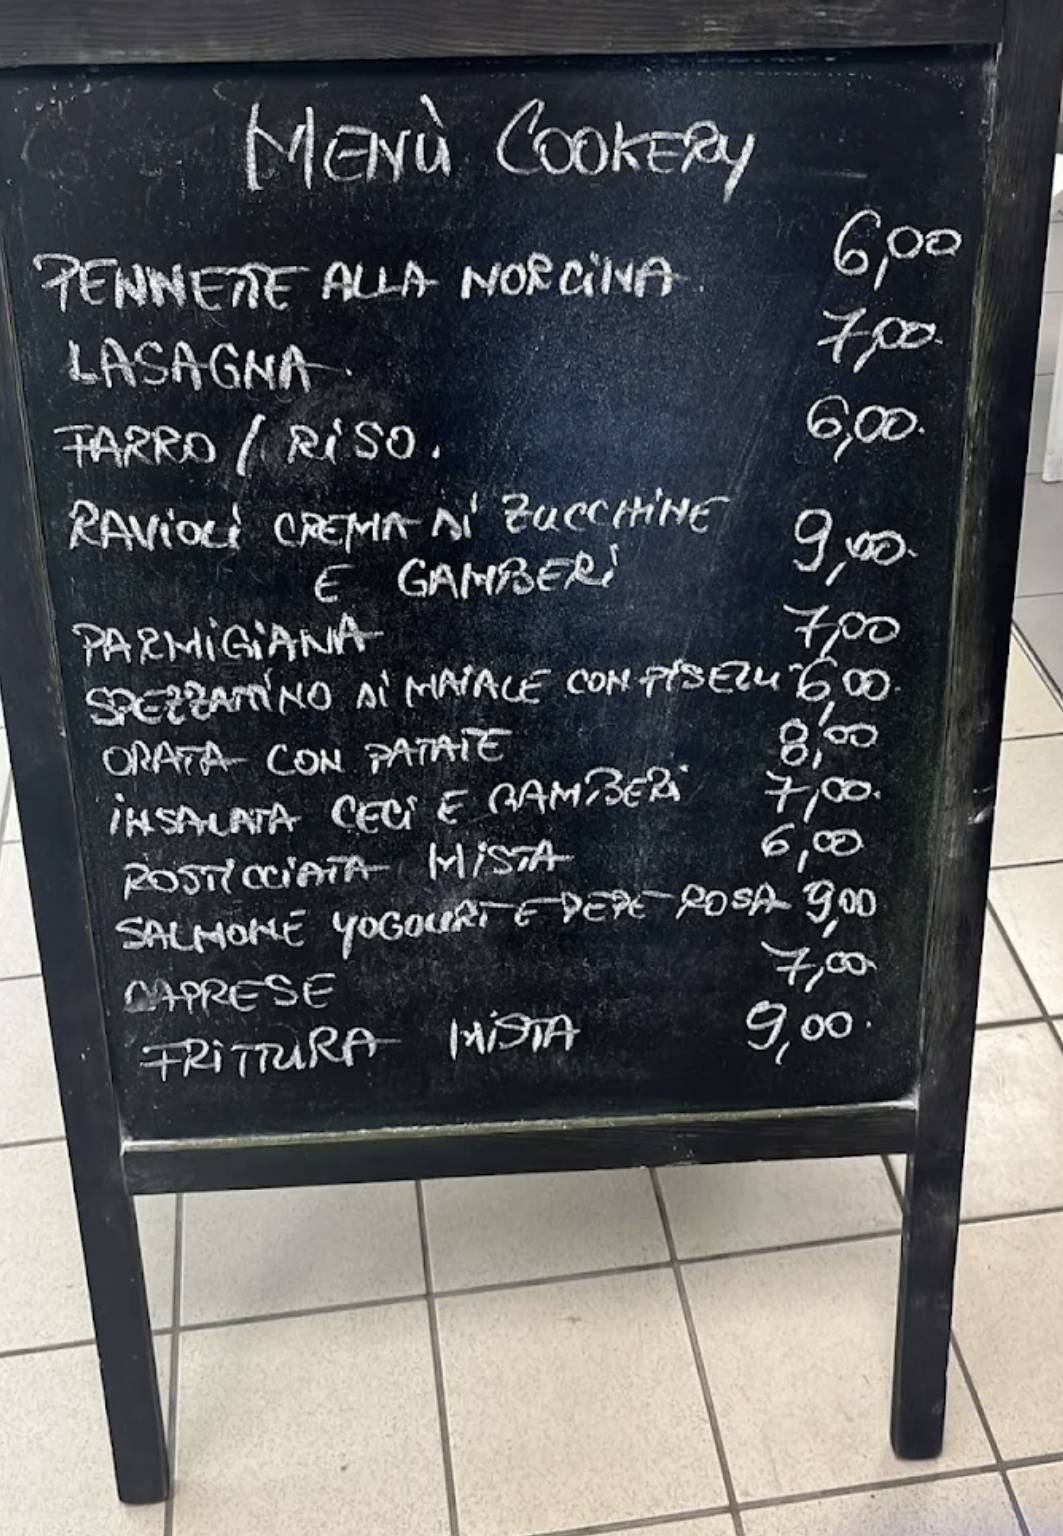 MENÙ COOKERY
PENNETTE ALLA NORCINA. 6,00
LASAGNA. 7,00.
FARRO / RISO. 6,00.
RAVIOLI CREMA DI ZUCCHINE 9,00.
E GAMBERI
PARMIGIANA 7,00
SPEZZATTINO DI MAIALE CON PISELLI 6,00.
ORATA CON PATATE 8,00
INSALATA CECI E GAMBERI 7,00.
ROSTICCIATA MISTA 6,00
SALMONE YOGOURT E PEPE ROSA 9,00
CAPRESE 7,00
FRITTURA MISTA 9,00.